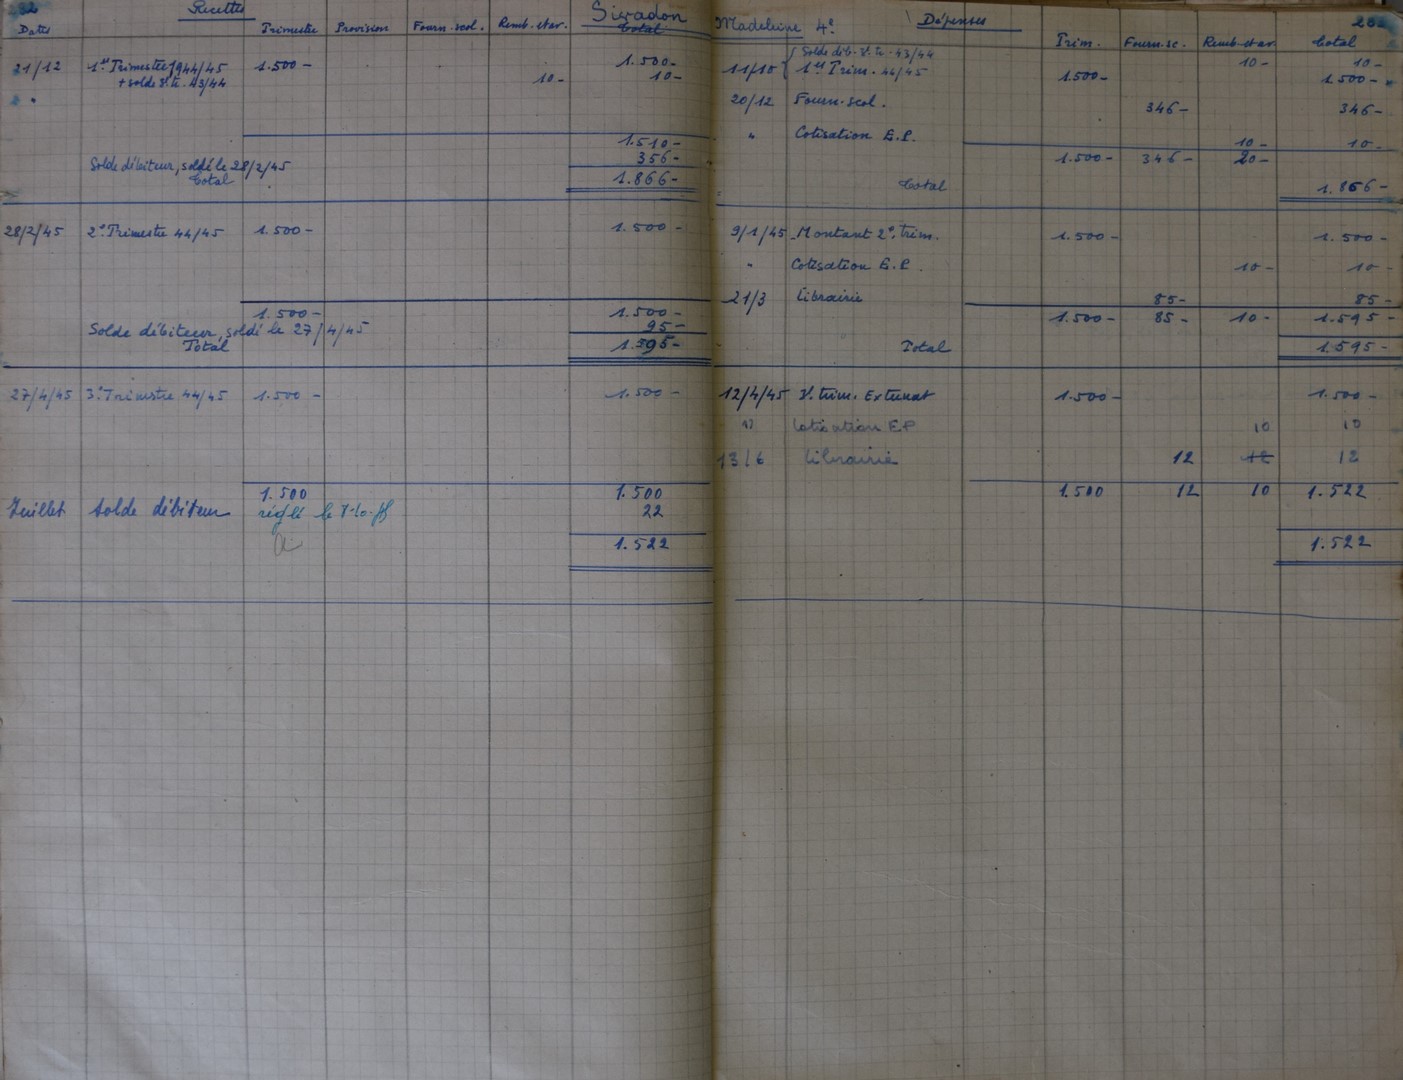 Recettes
Sivadon
Dates Trimestre Provision Fourn. scol. Remb. et av. Total
21/12 1er Trimestre 1944/45 1.500 - 1.500 -
+ solde 3e tr. 43/44 10 - 10 -
1.510 -
356 -
Solde débiteur, soldé le 28/2/45
Total 1.866 -
28/2/45 2e Trimestre 44/45 1.500 - 1.500 -
1.500 - 1.500 -
Solde débiteur, soldé le 27/4/45 95 -
Total 1.595 -
27/4/45 3e Trimestre 44/45 1.500 - 1.500 -
1.500 1.500
Juillet Solde débiteur réglé le 22
1.522
Madeleine 4e Dépenses
Trim. Fourn. sc. Remb. et av. Total
Solde déb. 3e tr. 43/44 10 - 10 -
11/10 1er Trim. 44/45 1.500 - 1.500 -
20/12 Fourn. scol. 346 - 346 -
" Cotisation E.P. 10 - 10 -
1.500 - 346 - 20 -
Total 1.866 -
9/1/45 Montant 2e trim. 1.500 - 1.500 -
" Cotisation E.P. 10 - 10 -
21/3 Librairie 85 - 85 -
1.500 - 85 - 10 - 1.595 -
Total 1.595 -
12/4/45 3e trim. Externat 1.500 - 1.500 -
" Cotisation EP 10 10
13/6 Librairie 12 12 12
1.500 12 10 1.522
1.522